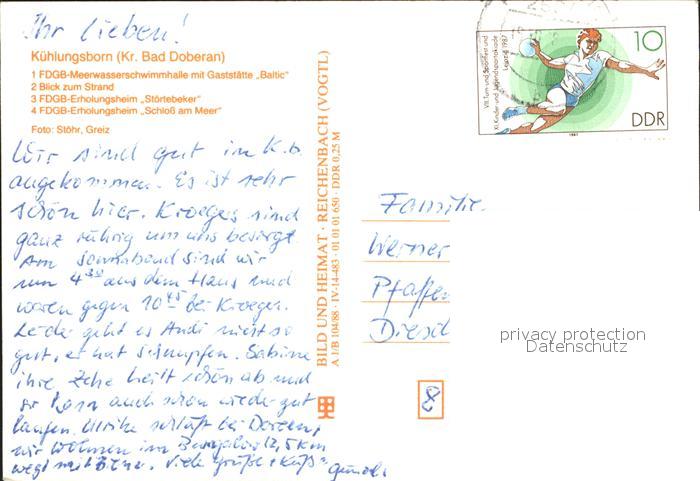 Ihr Lieben!
Kühlungsborn (Kr. Bad Doberan)
1 FDGB-Meerwasserschwimmhalle mit Gaststätte „Baltic“
2 Blick zum Strand
3 FDGB-Erholungsheim „Störtebeker“
4 FDGB-Erholungsheim „Schloß am Meer“
Foto: Stöhr, Greiz
Wir sind gut in K.b.
angekommen. Es ist sehr
schön hier. Kroegers sind
ganz rührig um uns besorgt.
Am Sonnabend sind wir
um 4 30 aus dem Haus und
waren gegen 10 45 bei Kroeger.
Leider geht es Andi nicht so
gut, er hat Schnupfen. Sabine
ihre Zehe heilt schön ab und
kann auch schon wieder gut
laufen. Ulrike schläft bei Doreen,
wir wohnen im Bungalow (2,5 km
weg). Viele Grüße + Kuß
BILD UND HEIMAT · REICHENBACH (VOGTL)
A 1/B 104/88 · IV-14-483 · 01 01 01 650 · DDR 0,25 M
VIII. Turn- und Sportfest und
XI. Kinder- und Jugendspartakiade
Leipzig 1987
10
DDR
1987
Familie
Werner
Pfaffen
privacy protection
Datenschutz